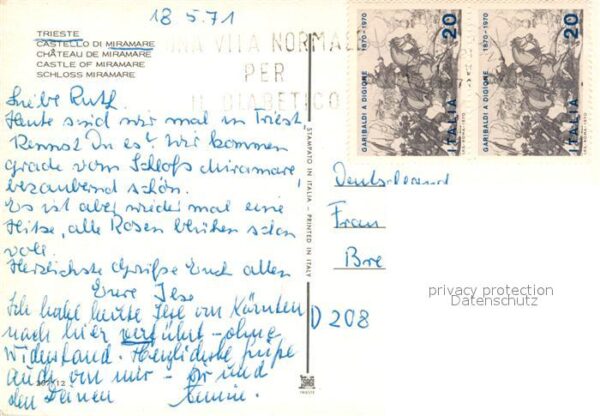 18.5.71
TRIESTE
CASTELLO DI MIRAMARE
CHÂTEAU DE MIRAMARE
CASTLE OF MIRAMARE
SCHLOSS MIRAMARE
UNA VITA NORMALE
PER
IL DIABETICO
GARIBALDI A DIGIONE 1870-1970
ITALIA 20
GARIBALDI A DIGIONE 1870-1970
ITALIA 20
Liebe Ruth.
Heute sind wir mal in Triest,
Kennst Du es? Wir kommen
grade vom Schloß Miramare
bezaubernd schön.
Es ist aber wieder mal eine
Hitze, alle Rosen blühen schon
voll.
Herzlichste Grüße Euch allen
Eure Ilse
Ich habe heute Ilse von Kärnten
nach hier verführt - ohne
Widerstand. Herzliche Grüße
auch von mir - Dir und
den Deinen
STAMPATO IN ITALIA - PRINTED IN ITALY
Deutschland
Frau
Bre
D 208
privacy protection
Datenschutz
TRIESTE